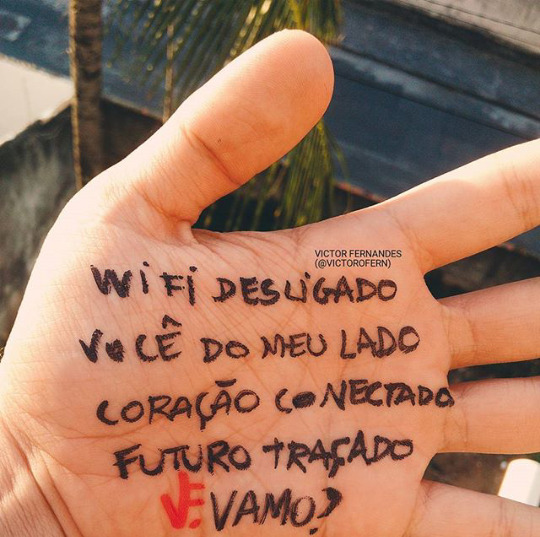 VICTOR FERNANDES
(@VICTOROFERN)
WiFi DESLIGADO
VOCÊ DO MEU LADO
CORAÇÃO CONECTADO
FUTURO TRAÇADO
VF. VAMO?